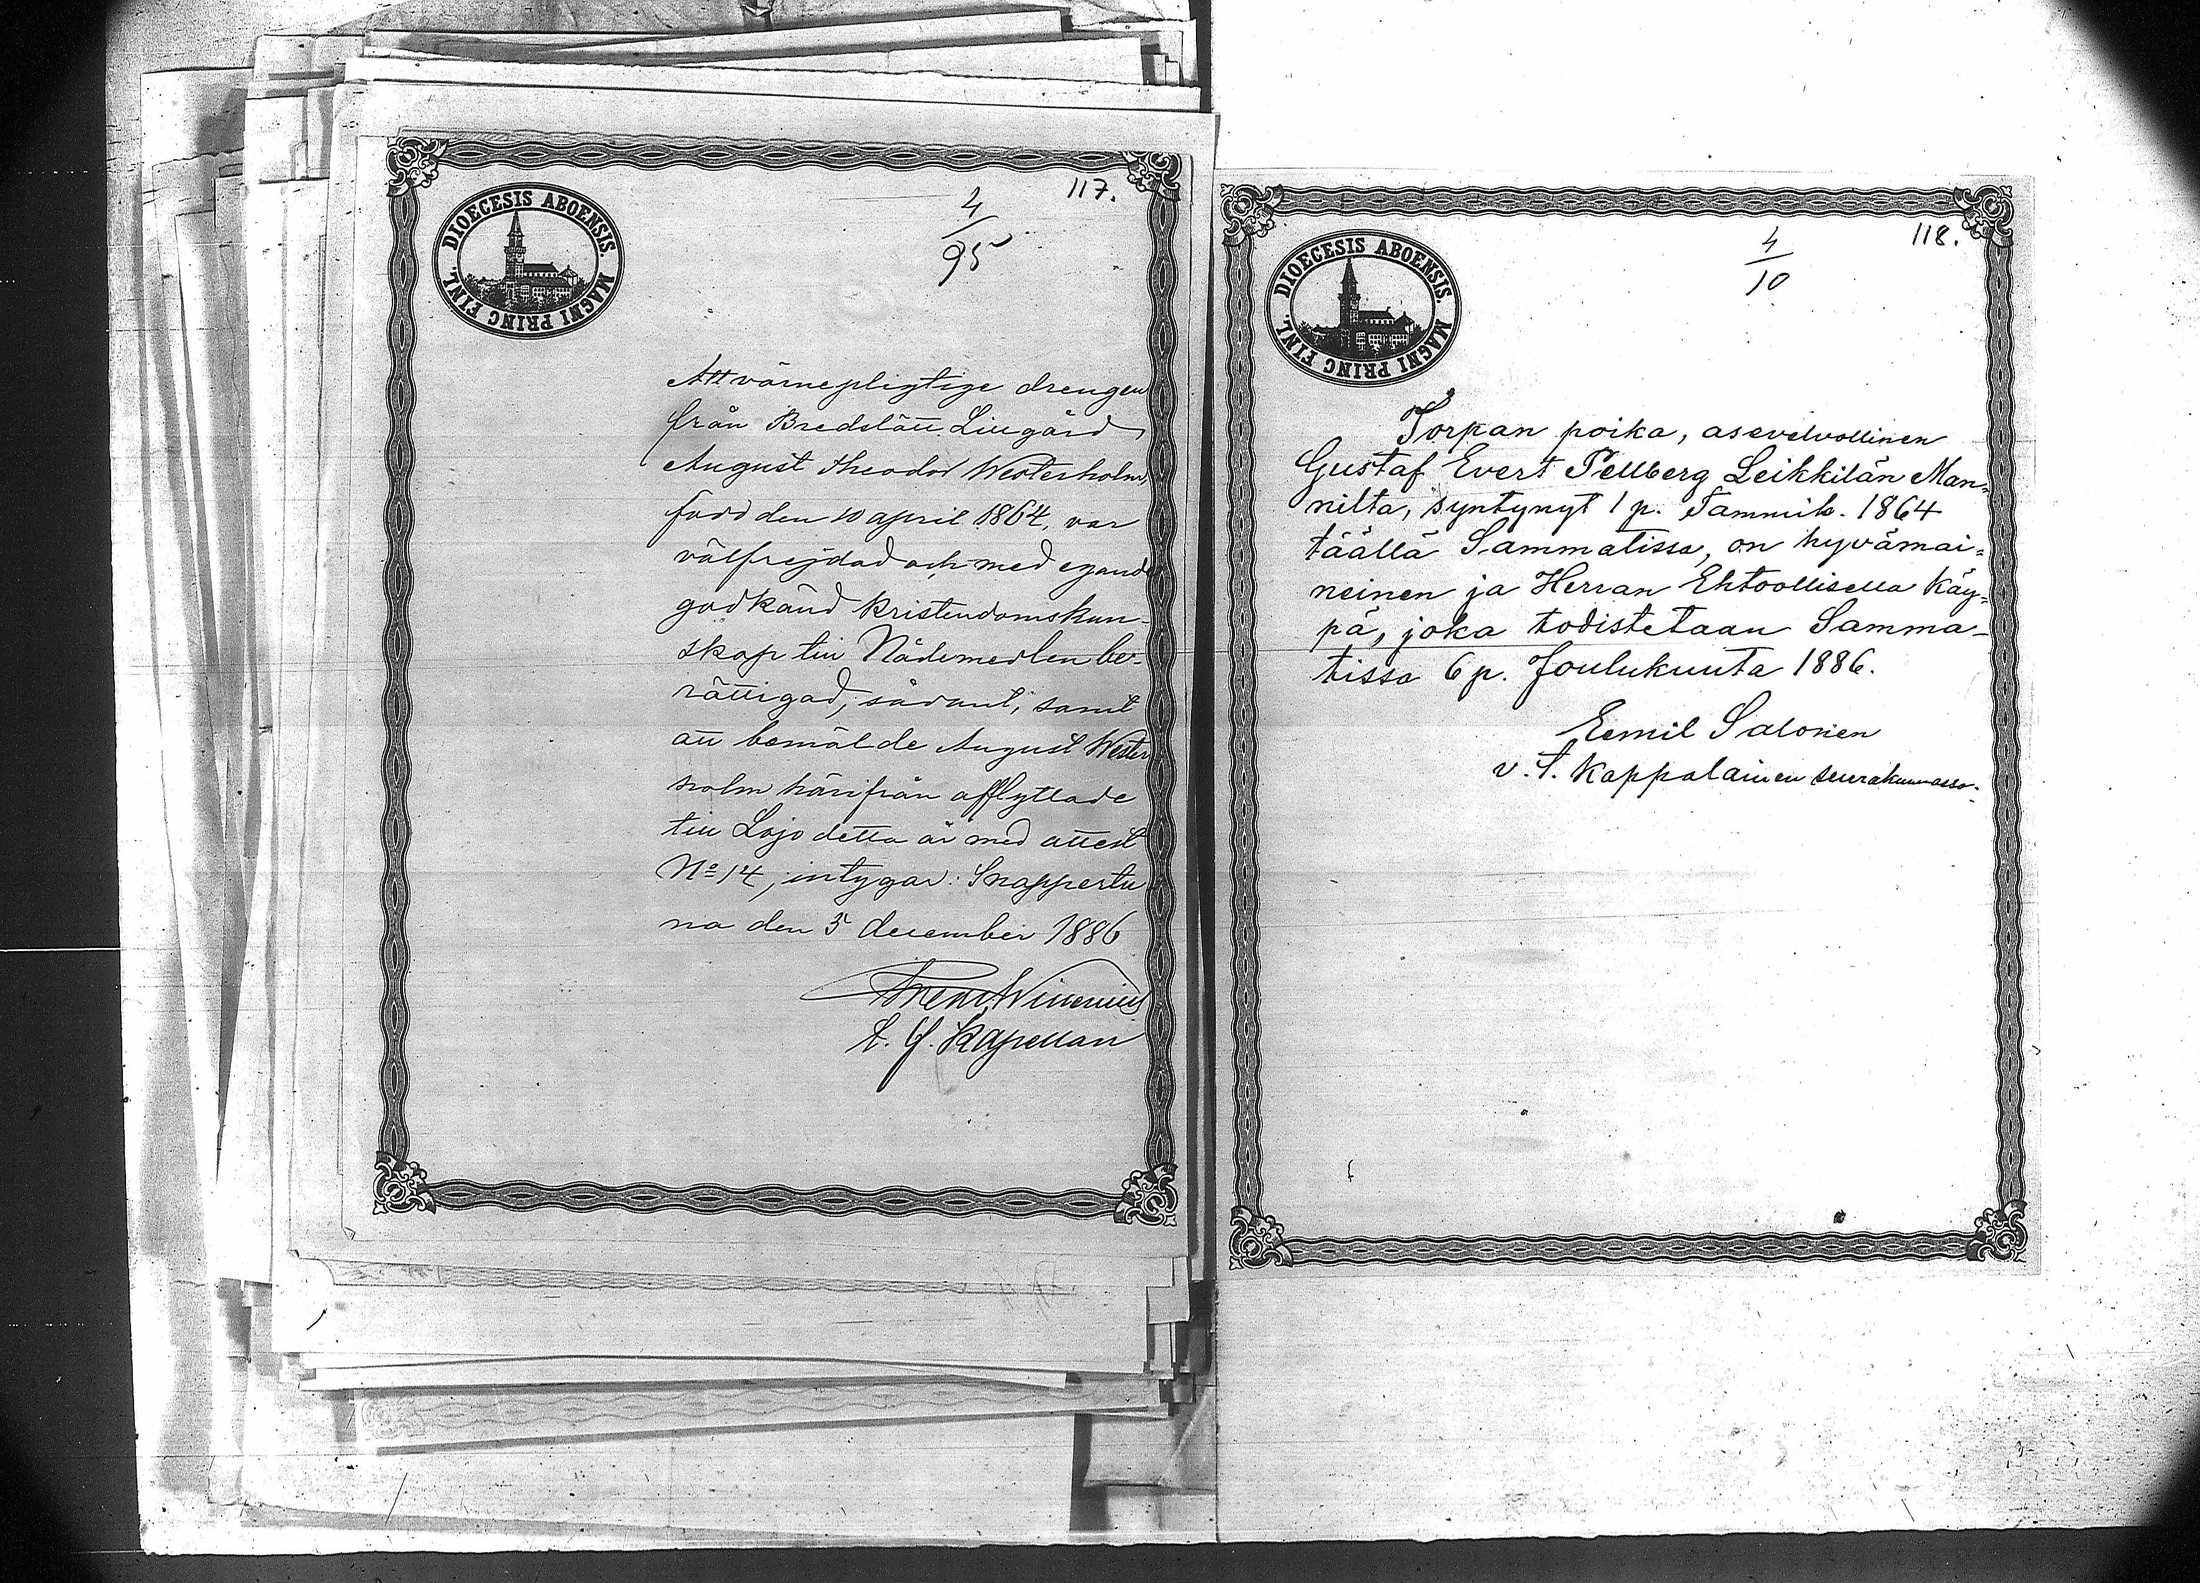 117.
4
95
DIOECESIS ABOENSIS. MAGNI PRINC FINL.
Att värnepligtige drengen
från Bredslätt Lillgård,
August Theodor Westerholm,
född den 10 april 1864, var
välfrejdad och med egande
godkänd kristendomskun-
skap till Nådemedlen be-
rättigad, sådant, samt
att bemälde August Wester
holm härifrån afflyttade
till Lojo detta år med attest
No 14, intygar: Snappertu
na den 5 december 1886
t. f. Kapellan
118.
4
10
DIOECESIS ABOENSIS. MAGNI PRINC FINL.
Torpan poika, asevelvollinen
Gustaf Evert Tellberg Leikkilän Man-
nilta, syntynyt 1 p. Tammik. 1864
täällä Sammatissa, on hyvämai-
neinen ja Herran Ehtoollisella käy-
pä, joka todistetaan Samma-
tissa 6 p. Joulukuuta 1886.
Eemil Salonen
v. t. Kappalainen seurakunnassa.